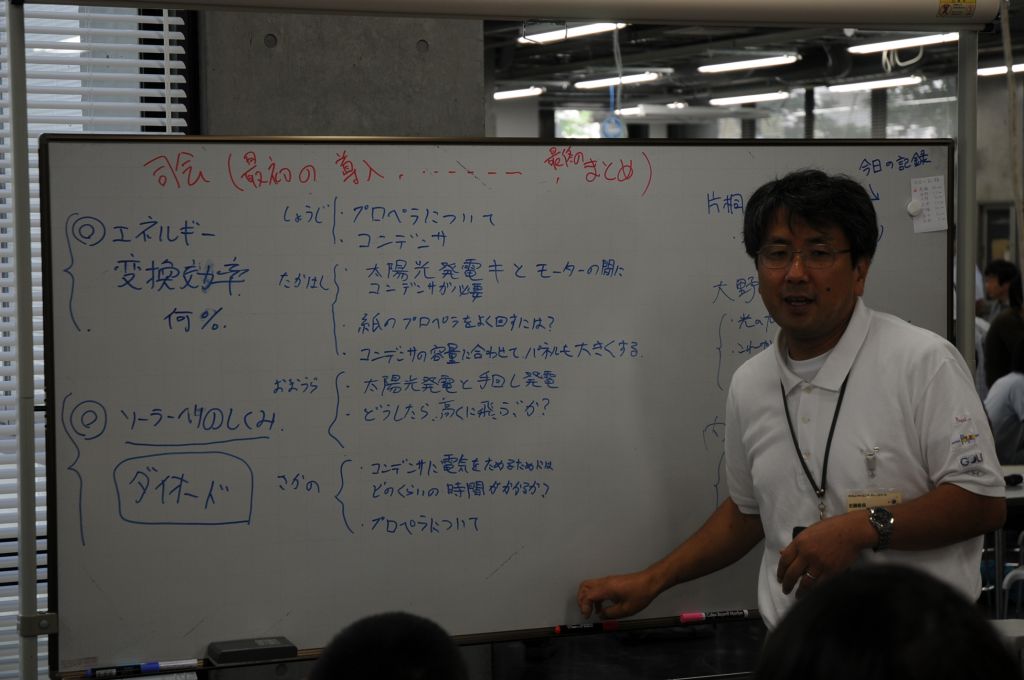 司会(最初の導入.------最後のまとめ)
今日の記録
◎エネルギー
変換効率
何%.
しょうじ
・プロペラについて
・コンデンサ
たかはし
・太陽光発電キとモーターの間に
コンデンサが必要
・紙のプロペラをよく回すには?
・コンデンサの容量に合わせてパネルも大きくする.
◎ソーラーパネルのしくみ.
ダイオード
おおうら
・太陽光発電と手回し発電
・どうしたら、高くに飛ぶか?
さかの
・コンデンサに電気をためるためには
どのくらいの時間がかかるか?
・プロペラについて
片桐
大野
・光の